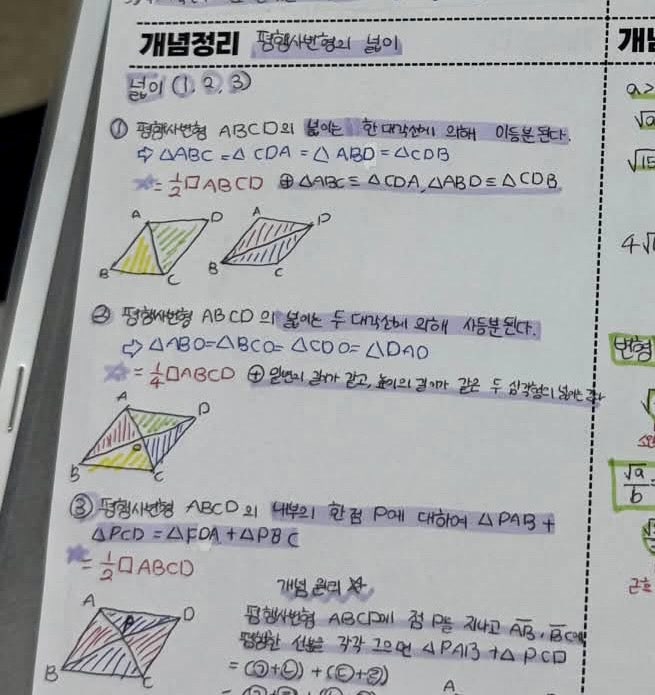 개념정리 평행사변형의 넓이
넓이 (1, 2, 3)
① 평행사변형 ABCD의 넓이는 한 대각선에 의해 이등분된다.
⇨ △ABC = △CDA = △ABD = △CDB
☆ = 1/2 □ABCD ⊕ △ABC ≡ △CDA, △ABD ≡ △CDB
A D A D
B C B C
② 평행사변형 ABCD의 넓이는 두 대각선에 의해 사등분된다.
⇨ △ABO = △BCO = △CDO = △DAO
☆ = 1/4 □ABCD ⊕ 밑변의 길이가 같고, 높이의 길이가 같은 두 삼각형의 넓이는 같다
A D
O
B C
③ 평행사변형 ABCD의 내부의 한 점 P에 대하여 △PAB +
△PCD = △PDA + △PBC
☆ = 1/2 □ABCD
개념 원리 ☆
A D
P
B C
평행사변형 ABCD에 점 P를 지나고 AB, BC에
평행한 선분을 각각 그으면 △PAB + △PCD
= (㉠+㉡) + (㉢+㉣)
A
개념
a>
√a
4√
변형
√a/b =